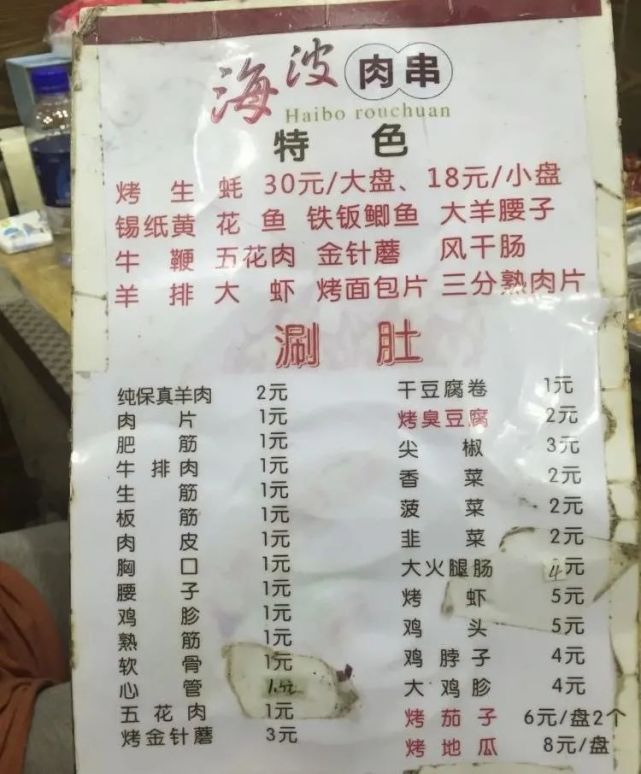 海波肉串
Haibo rouchuan
特色
烤生蚝 30元/大盘、18元/小盘
锡纸黄花鱼 铁钣鲫鱼 大羊腰子
牛鞭 五花肉 金针蘑 风干肠
羊排 大虾 烤面包片 三分熟肉片
涮肚
纯保真羊肉 2元
肉片 1元
肥筋 1元
牛排肉 1元
生筋 1元
板筋 1元
肉皮 1元
胸口 1元
腰子 1元
鸡胗 1元
熟筋 1元
软骨 1元
心管
五花肉 1元
烤金针蘑 3元
干豆腐卷 1元
烤臭豆腐 2元
尖椒 3元
香菜 2元
菠菜 2元
韭菜 2元
大火腿肠 4元
烤虾 5元
鸡头 5元
鸡脖子 4元
大鸡胗 4元
烤茄子 6元/盘2个
烤地瓜 8元/盘